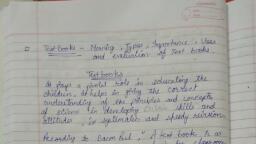 Text books - Meaning, Types, Importance, Uses
and evaluation of Text books.
Text books
It plays a pivotal role in educating the
children. It helps in the correct
understanding of the principles and concepts
of science in developing skills and
attitudes, in systematic and speedy revision
According to Bacon "A text book is a
classroom